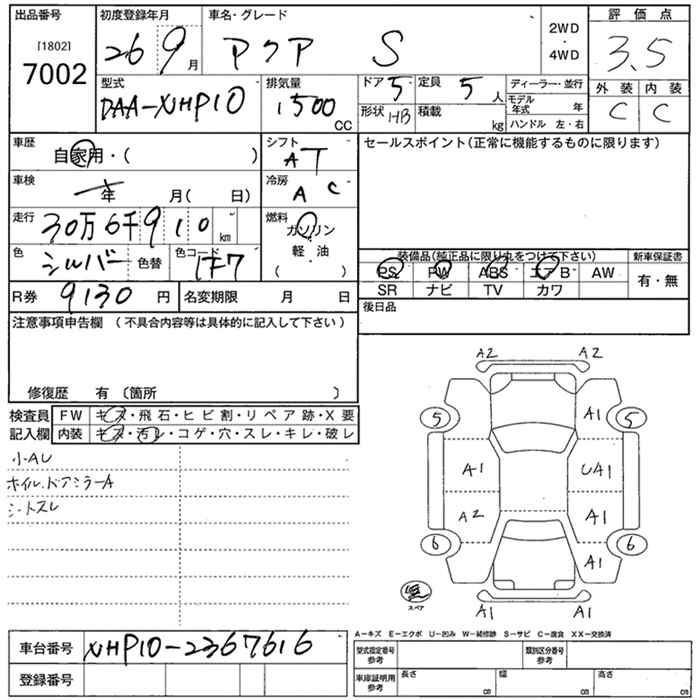 出品番号 初度登録年月 車名・グレード 評価点
[1802] 7002 26 9月 アクア S 2WD・4WD 3.5
型式 排気量 ドア 5 定員 5人 ディーラー・並行 外装 内装
DAA-NHP10 1500CC 形状 HB 積載 kg モデル年式 年 C C
ハンドル 左・右
車歴 シフト セールスポイント(正常に機能するものに限ります)
自家用・( ) AT
車検 年 月( 日) 冷房 AC
走行 30万6千910km 燃料 ガソリン
軽・油
( )
色 シルバー 色替 色コード 1F7
装備品(純正品に限り丸をつけて下さい) 新車保証書
PS PW ABS エアB AW 有・無
SR ナビ TV カワ
R券 9130円 名変期限 月 日
後日品
注意事項申告欄 (不具合内容等は具体的に記入して下さい)
修復歴 有 〔箇所 〕
検査員 FW キズ・飛石・ヒビ割・リペア跡・X要
記入欄 内装 キズ・汚レ・コゲ・穴・スレ・キレ・破レ
小AU
ホイル.ドアミラーA
シートスレ
A2 A2
5 A1 5
A1 UA1
A2 A1
6 A1 6
スペア A1 A1
A-キズ E-エクボ U-凹み W-補修跡 S-サビ C-腐食 XX-交換済
車台番号 NHP10-2367616
型式指定番号 参考 類別区分番号 参考
登録番号
車庫証明用 参考 長さ cm 幅 cm 高さ cm